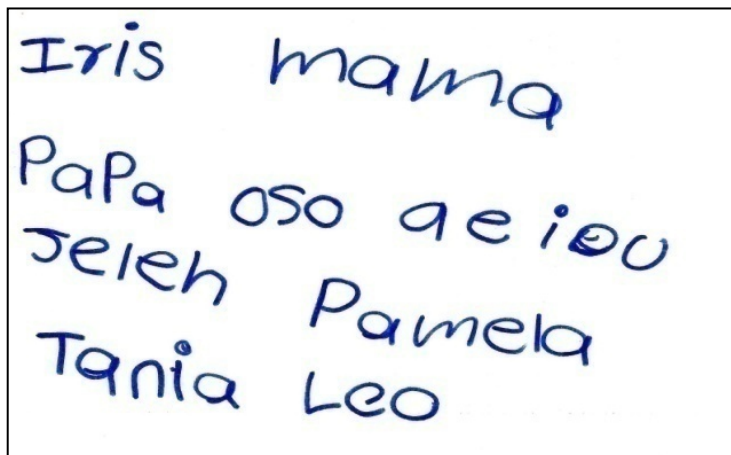 Iris mama
PaPa oso aeiou
Jeleh Pamela
Tania Leo